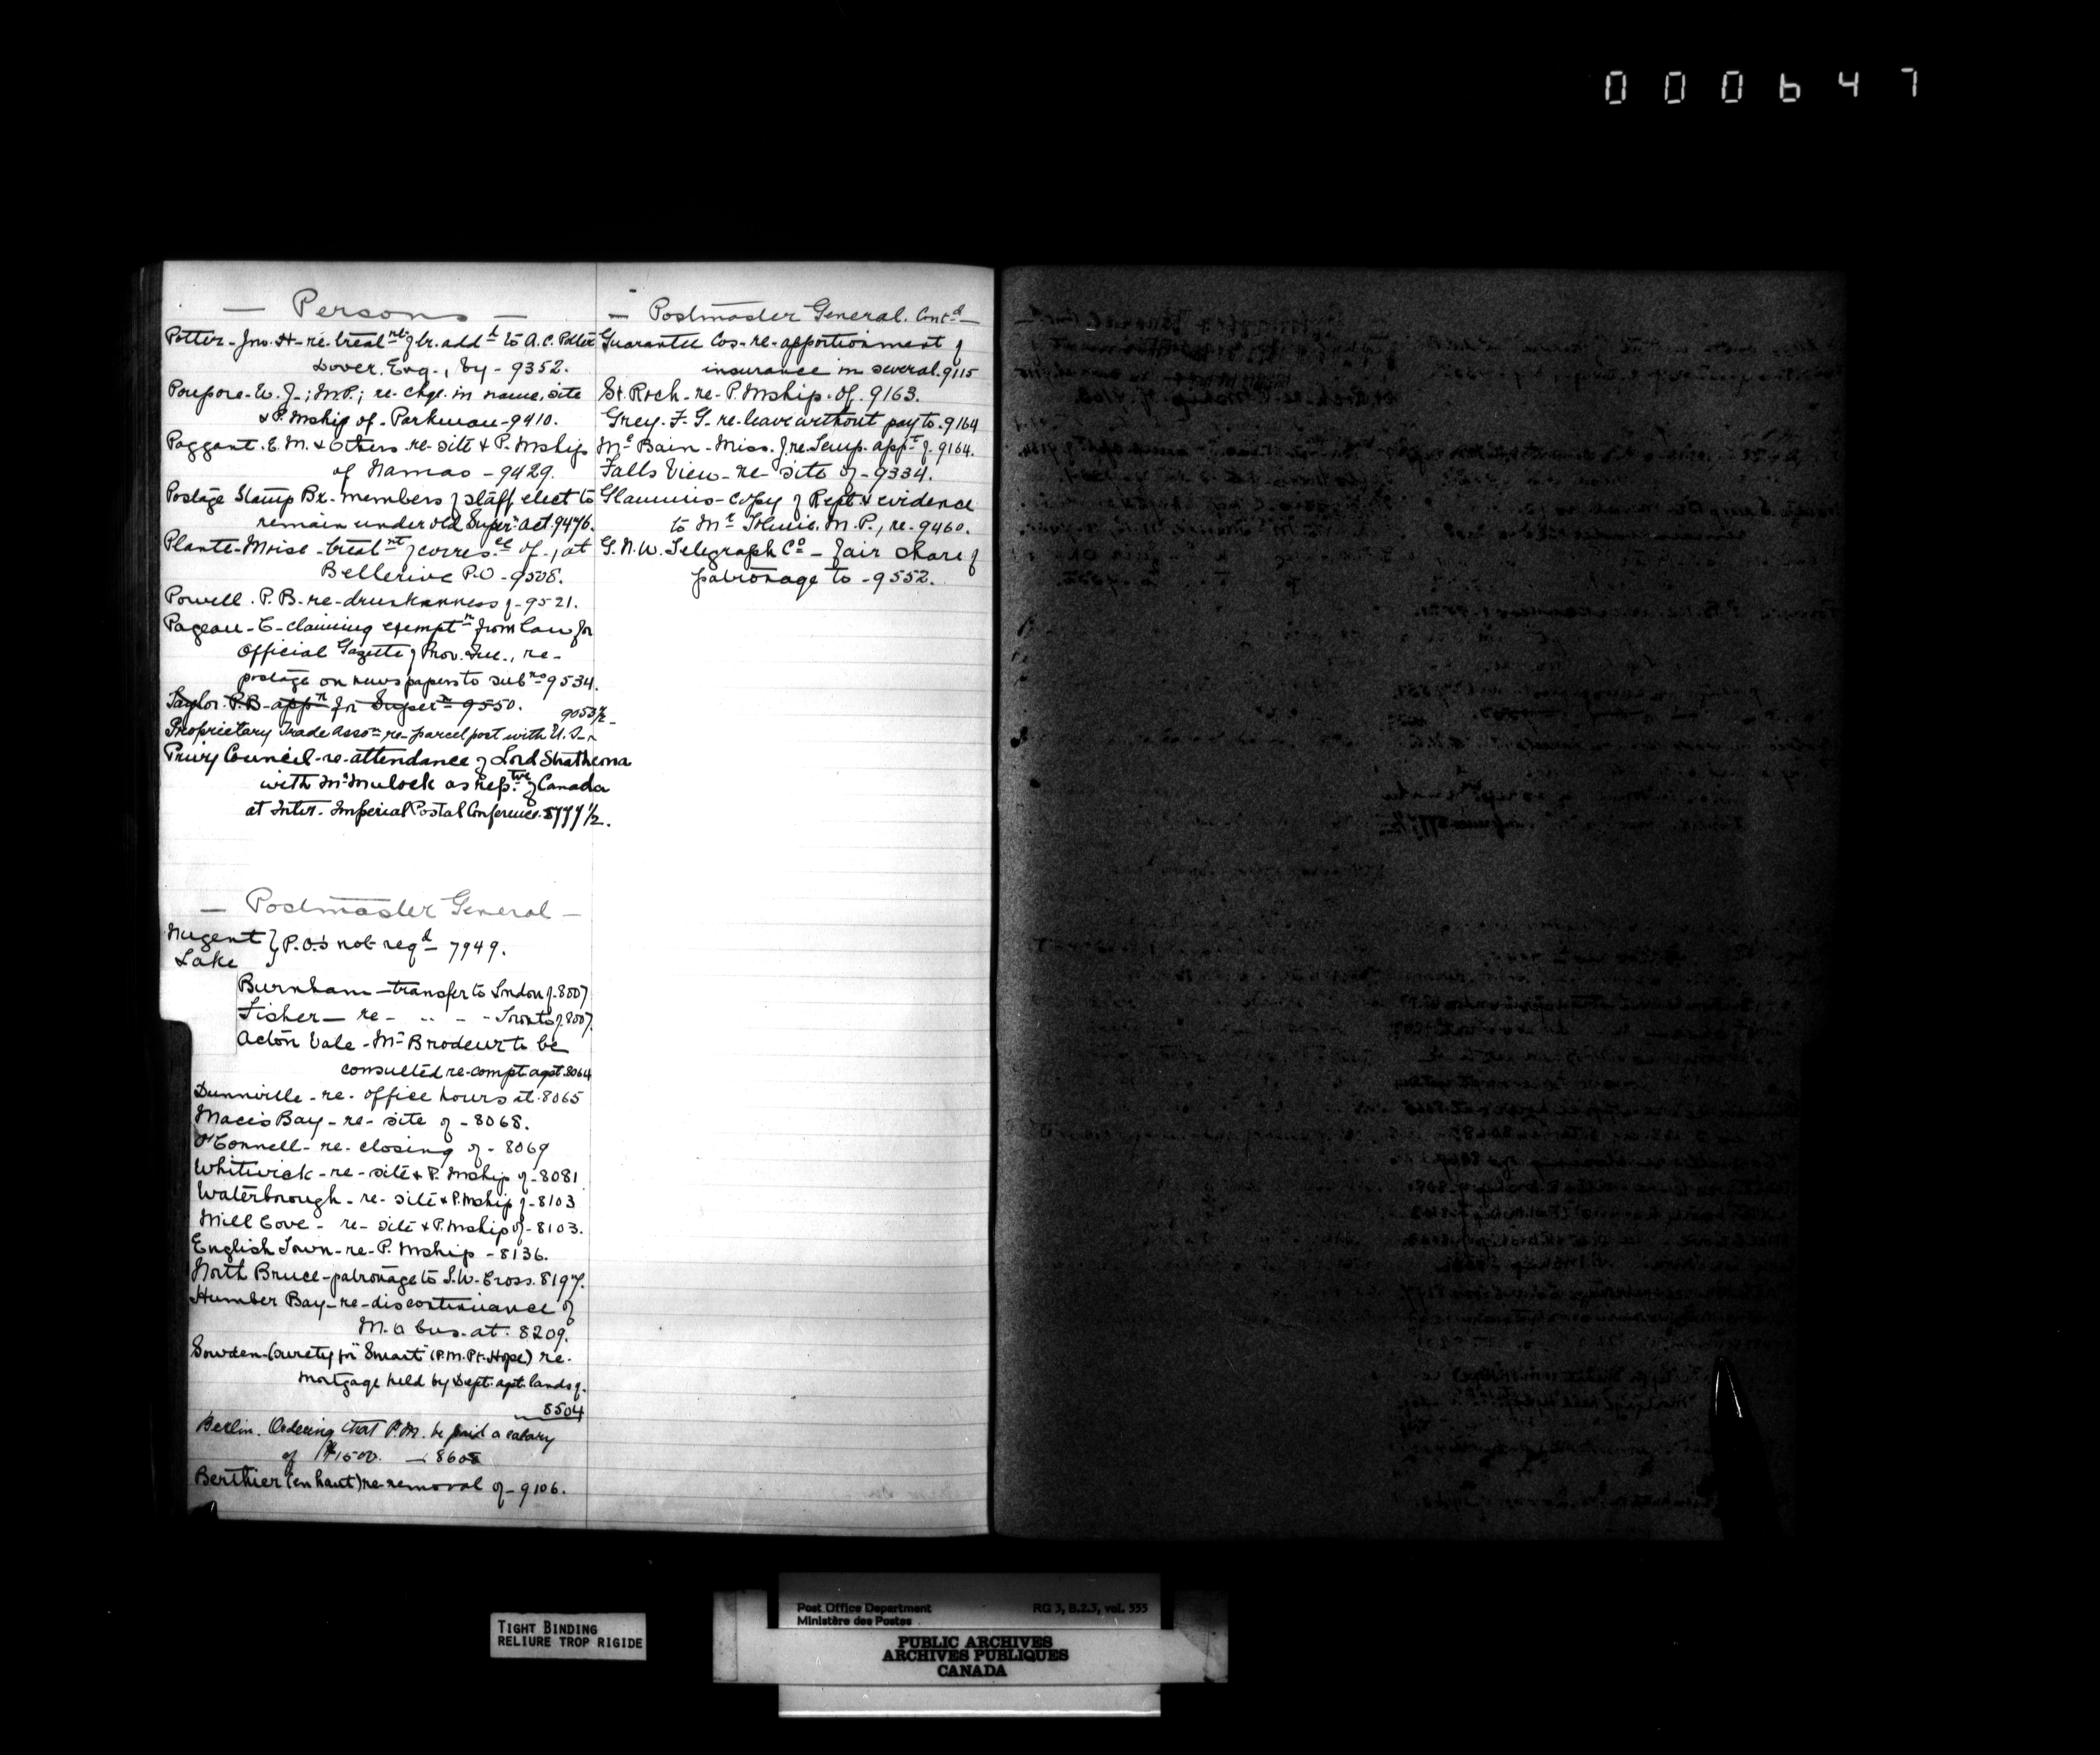 000647
— Persons —
Potter - Jno. H - re. treat nt of lr. add d to A.C. Potter
Dover. Eng., by - 9352.
Poupore - W. J.; M.P.; re - chge. in name, site
& P. Mship of - Parkman - 9410.
Paggant. E. M. & Others. re - site & P. Mship
of Namao - 9429.
Postage Stamp Br. - members of staff elect to
remain under old Super n Act. 9476.
Plante - Moise - treat nt of corres. ce of -, at
Bellerive P.O - 9508.
Powell. P. B. - re - drunkenness of - 9521.
Pageau - C - claiming exempt n from law for
Official Gazette of Prov. Que., re -
postage on newspapers to sub rs 9534.
Taylor. P.B - app n for Super n 9550.
9053½ -
Proprietary Trade Asso n re - parcel post with U.S. -
Privy Council - re - attendance of Lord Strathcona
with Mr Mulock as rep. tve of Canada
at Inter - Imperial Postal Conference. 8777½.
— Postmaster General —
Nugent } P.O.s not req d - 7949.
Lake
Burnham - transfer to London of - 8007
Fisher — re - " - - Toronto of 8007
Acton Vale - Mr Brodeur to be
consulted re - compt. agst 8064
Dunnville - re - office hours at - 8065
Maces Bay - re - site of - 8068.
O'Connell - re - closing of - 8069
Whitwick - re - site & P. Mship of - 8081
Waterborough - re - site & P. Mship of - 8103
Mill Cove - re - site & P. Mship of - 8103.
English Town - re - P. Mship - 8136.
North Bruce - patronage to S.W. Cross. 8197.
Humber Bay - re - discontinuance of
M. O bus. at - 8209.
Sowden - (surety for "Smart" (P.M. Pt. Hope) re -
mortgage held by Dept. agst. lands of.
8504
Berlin. Ordering that P.M. be paid a salary
of $1500. — 8608
Berthier (en haut) re - removal of - 9106.
— Postmaster General. Cont d —
Guarantee Cos - re - apportionment of
insurance in several. 9115
St. Roch - re - P. Mship. of. 9163.
Grey. F. G. - re - leave without pay to. 9164
Mc Bain - Miss. J. re. temp. app t of. 9164.
Falls View - re - site of - 9334.
Glammis - copy of Rept. & evidence
to Mr M.P., re - 9460.
G. N. W. Telegraph Co - fair share of
patronage to - 9552.
TIGHT BINDING
RELIURE TROP RIGIDE
Post Office Department RG 3, B.2.3, vol. 555
Ministère des Postes
PUBLIC ARCHIVES
ARCHIVES PUBLIQUES
CANADA